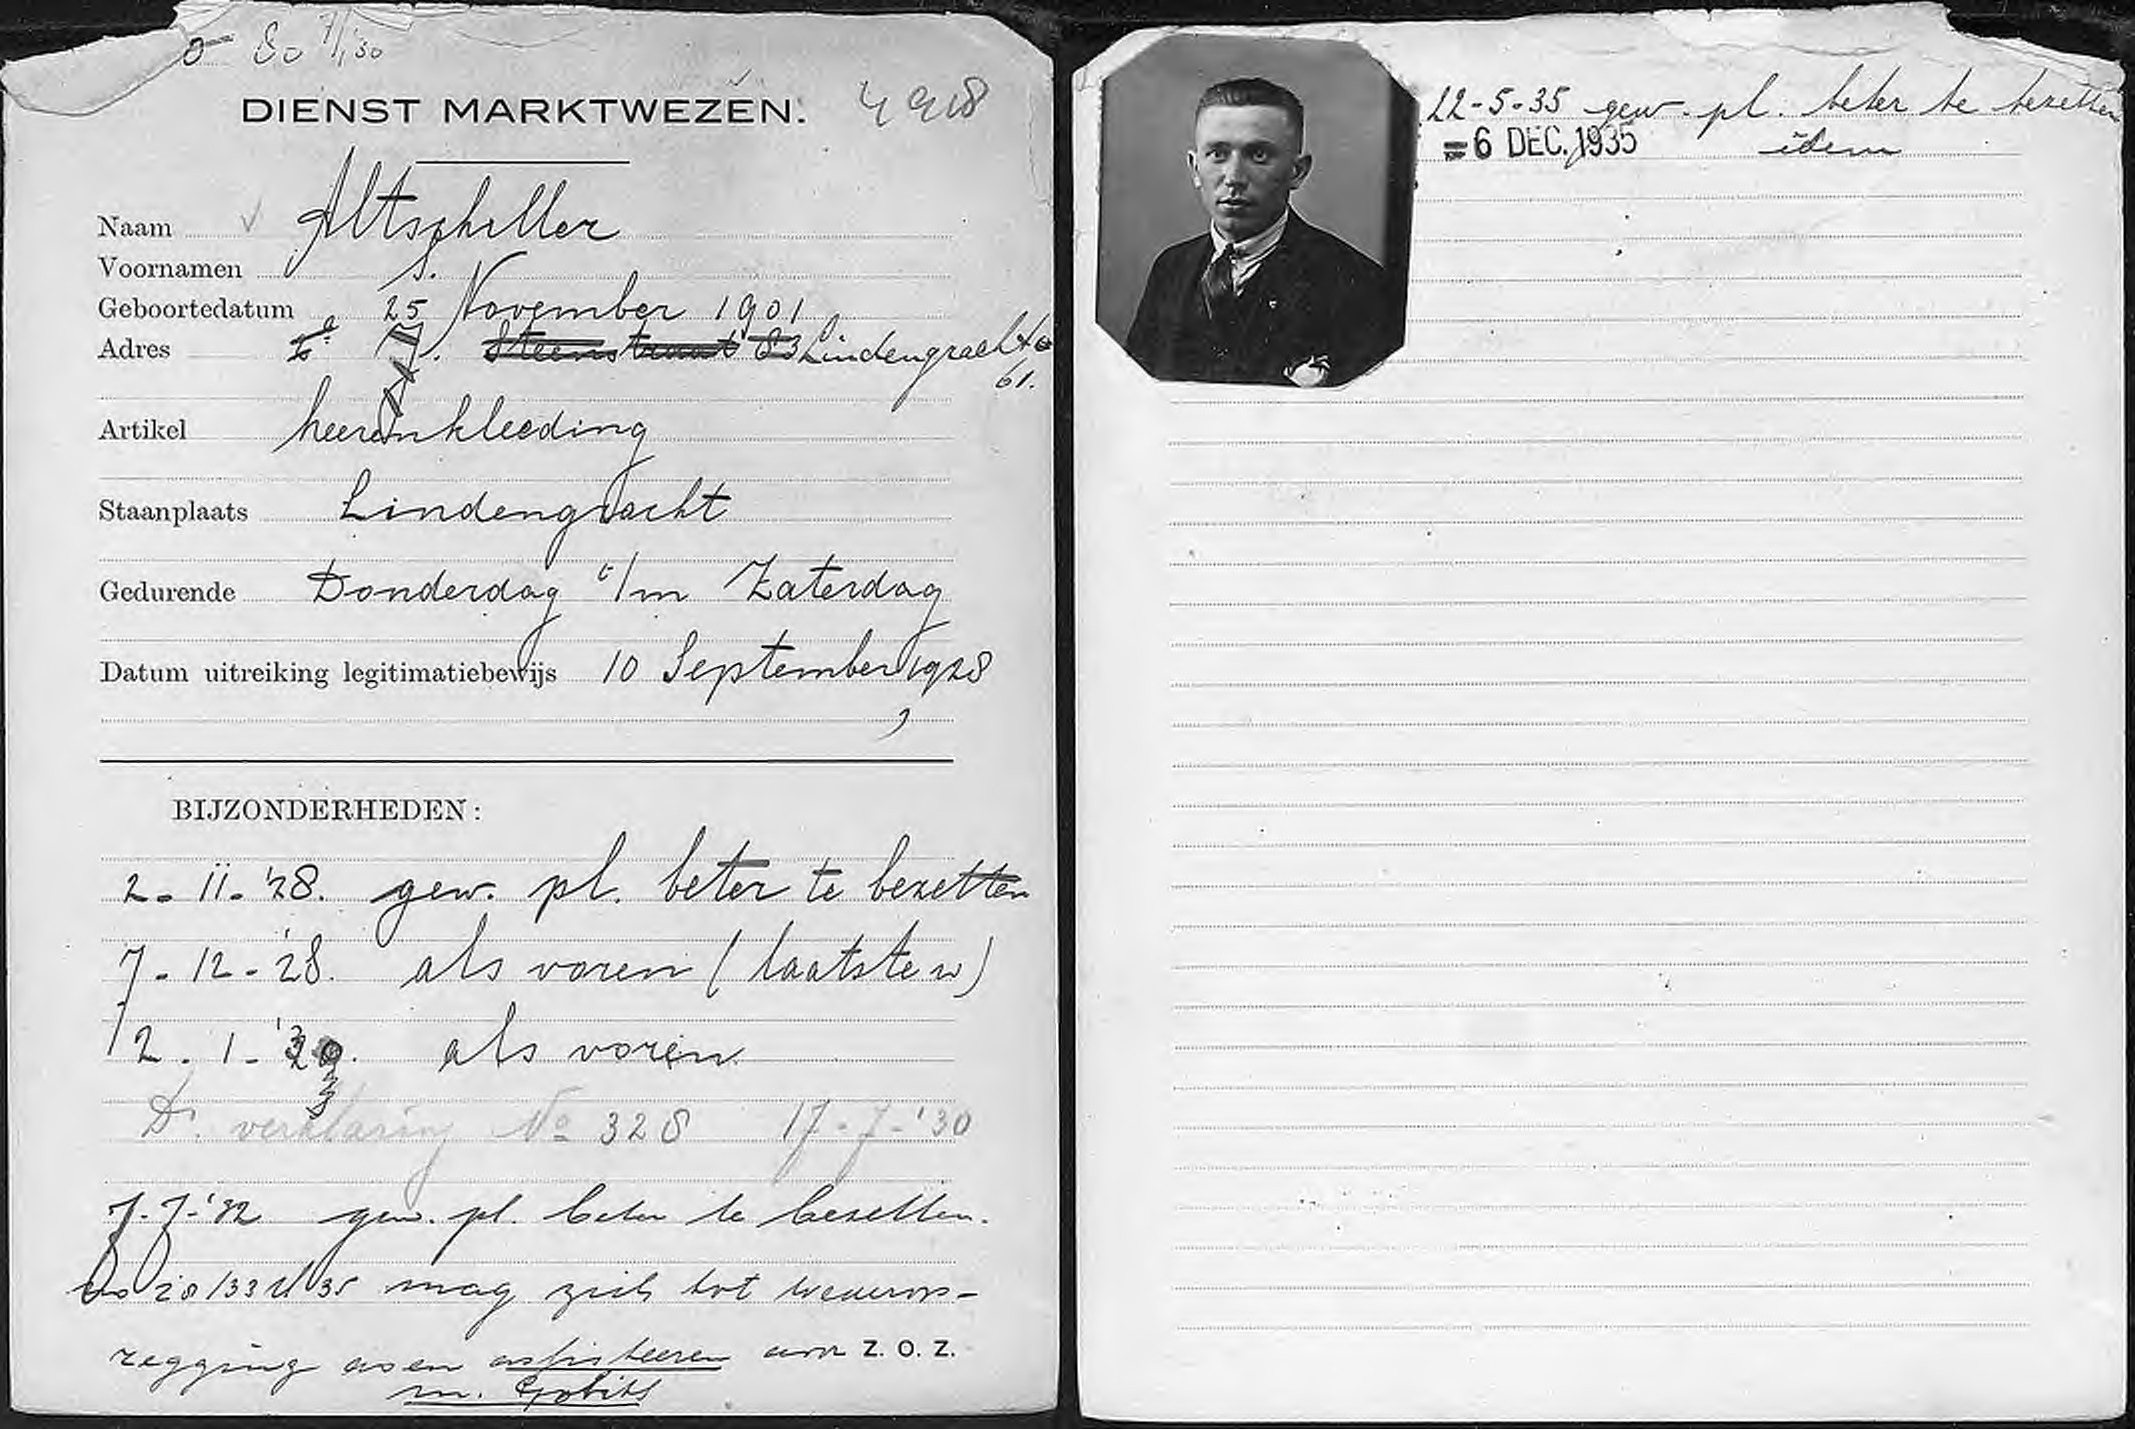 80 7/1 '30
DIENST MARKTWEZEN.
Naam Altschiller
Voornamen S.
Geboortedatum 25 November 1901
Adres Steenstraat 83 Lindengracht
61.
Artikel heerenkleeding
Staanplaats Lindengracht
Gedurende Donderdag t/m Zaterdag
Datum uitreiking legitimatiebewijs 10 September 1928
BIJZONDERHEDEN:
2-11-'28. gew. pl. beter te bezetten
7-12-'28. als voren (laatste w)
12-1-'29. als voren
Dr. verklaring No 328 17-7-'30
7-7-'32 gew. pl. beter te bezetten.
mag zich tot wederop-
zegging doen assisteeren door Z. O. Z.
m. Gobits
22-5-35 gew. pl. beter te bezetten
=6 DEC. 1935 idem